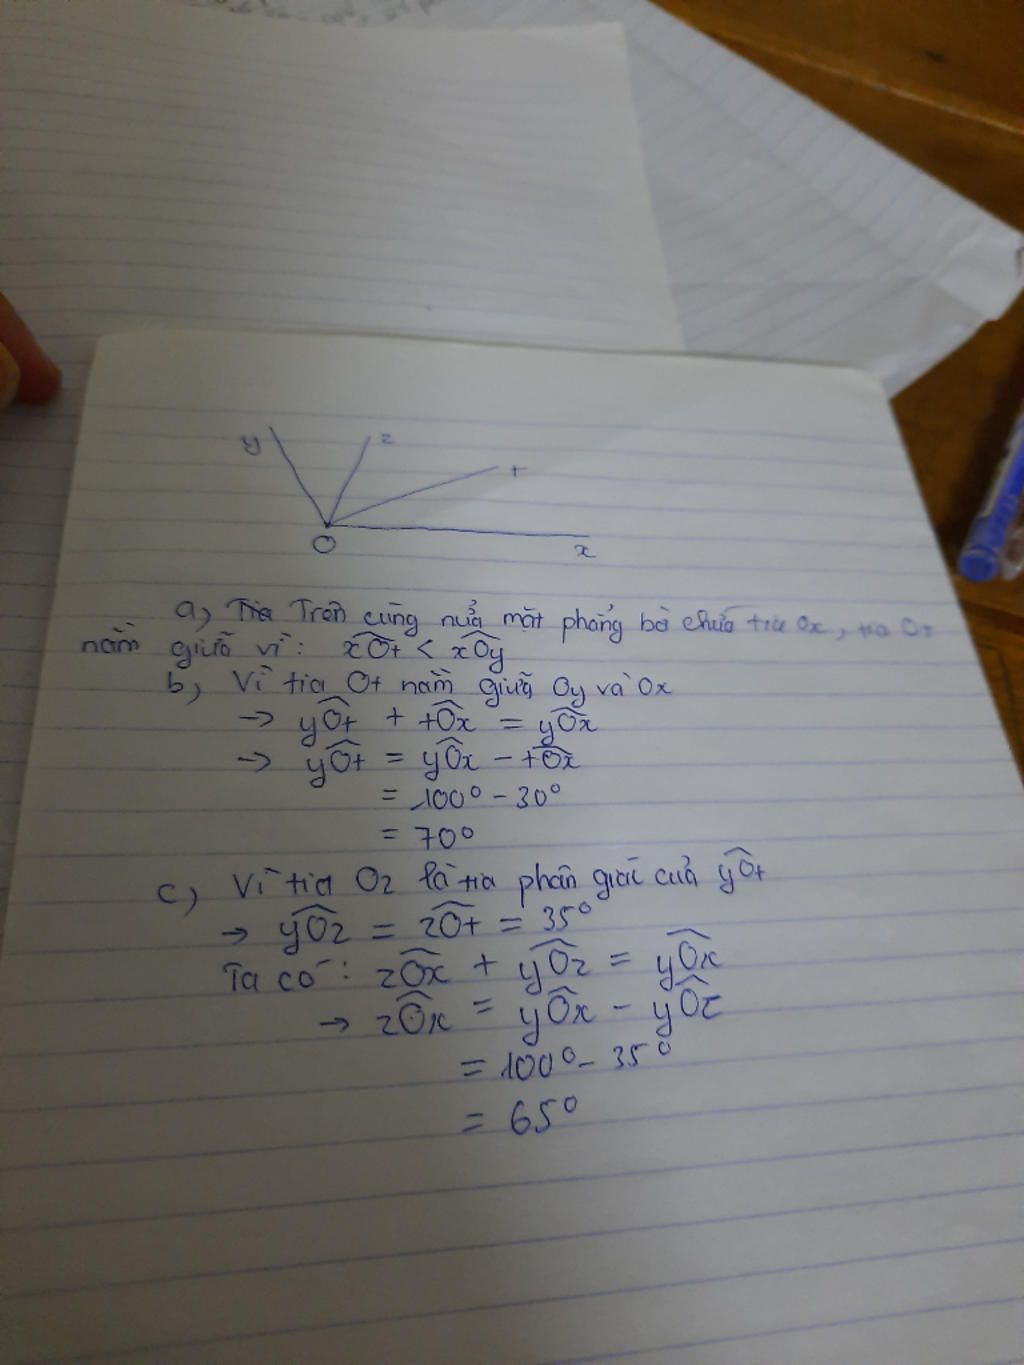 y
z
t
O
x
a) Trên cùng nửa mặt phẳng bờ chứa tia Ox, tia Ot
nằm giữa vì: xOt < xOy
b) Vì tia Ot nằm giữa Oy và Ox
→ yOt + tOx = yOx
→ yOt = yOx - tOx
= 100° - 30°
= 70°
c) Vì tia Oz là tia phân giác của yOt
→ yOz = zOt = 35°
Ta có: zOx + yOz = yOx
→ zOx = yOx - yOz
= 100° - 35°
= 65°